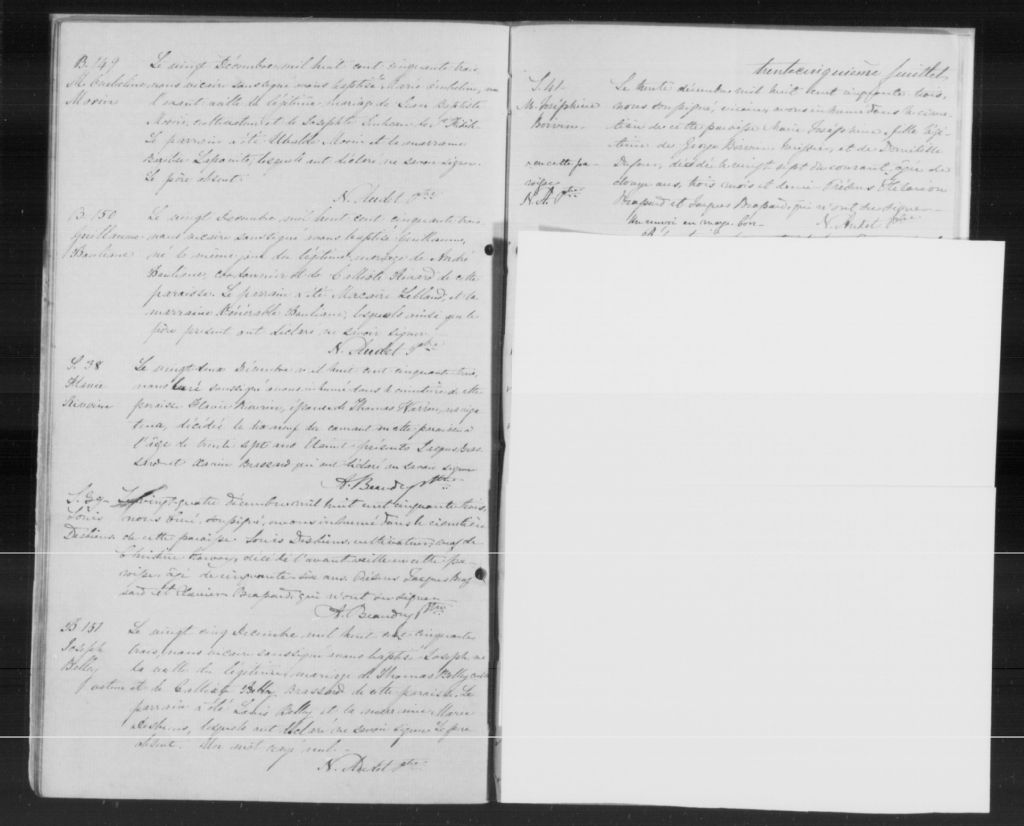 B. 149
M. Embeline
Morin
Le vingt Décembre, mil huit cent cinquante trois,
nous vicaire soussigné avons baptisé Marie Embeline, née
l'avant veille du légitime mariage de Jean Baptiste
Morin, cultivateur et de Josephte
Le parrain a été Ubalde Morin et la marraine
lesquels ont déclaré ne savoir signer.
Le père absent.
N. Audet Ptre
B. 150
Guillaume
Beaulieu
Le vingt Décembre mil huit cent cinquante trois
nous vicaire soussigné avons baptisé Guillaume,
né le même jour du légitime mariage de André
Beaulieu, cordonnier et de Calliste Rivard de cette
paroisse. Le parrain a été Macaire Leblanc, et la
marraine Honorable Beaulieu, lesquels ainsi que le
père présent ont déclaré ne savoir signer.
N. Audet Ptre
S. 38
Flavie
Le vingt deux Décembre mil huit cent cinquante trois,
nous Curé soussigné avons inhumé dans le cimetière de cette
paroisse Flavie épouse de Thomas
décédée le dix neuf du courant en cette paroisse à
l'âge de trente sept ans. Etaient présents Jacques Bras-
sard et Xavier Brassard qui ont déclaré ne savoir signer
A. Beaudry Ptre
S. 39
Louis
Desbiens
Le vingt-quatre décembre mil huit cent cinquante trois,
nous Curé, soussigné, avons inhumé dans le cimetière
de cette paroisse Louis Desbiens, cultivateur, veuf de
Christine décédé l'avant veille en cette pa-
roisse, âgé de cinquante six ans. Présens Jacques Bras-
sard et Xavier Brassard qui n'ont su signer.
A. Beaudry Ptre
B. 151
Joseph
Belley
Le vingt cinq Décembre, mil huit cent cinquante
trois, nous vicaire soussigné avons baptisé Joseph né
la veille du légitime mariage de Thomas Belley culti-
vateur et de Calliste Brassard de cette paroisse. Le
parrain a été Louis Belley et la marraine Marie
Desbiens, lesquels ont déclaré ne savoir signer. Le père
absent. Un mot rayé nul.
N. Audet ptre
trente cinquième feuillet.
S. 41
M. Joséphine
Boivin
en cette pa-
roisse
N. A. Ptre
Le trente décembre mil huit cent cinquante trois,
nous soussigné, vicaire, avons inhumé dans le cime-
tière de cette paroisse Marie Joséphine, fille légi-
time de George Boivin, huissier, et de Domitille
Dufour, décédée le vingt sept du courant, âgée de
douze ans, trois mois et demi. Présens Hilarion
Brassard et Jacques Brassard, qui n'ont su signer.
Un renvoi en marge bon.
N. Audet Ptre